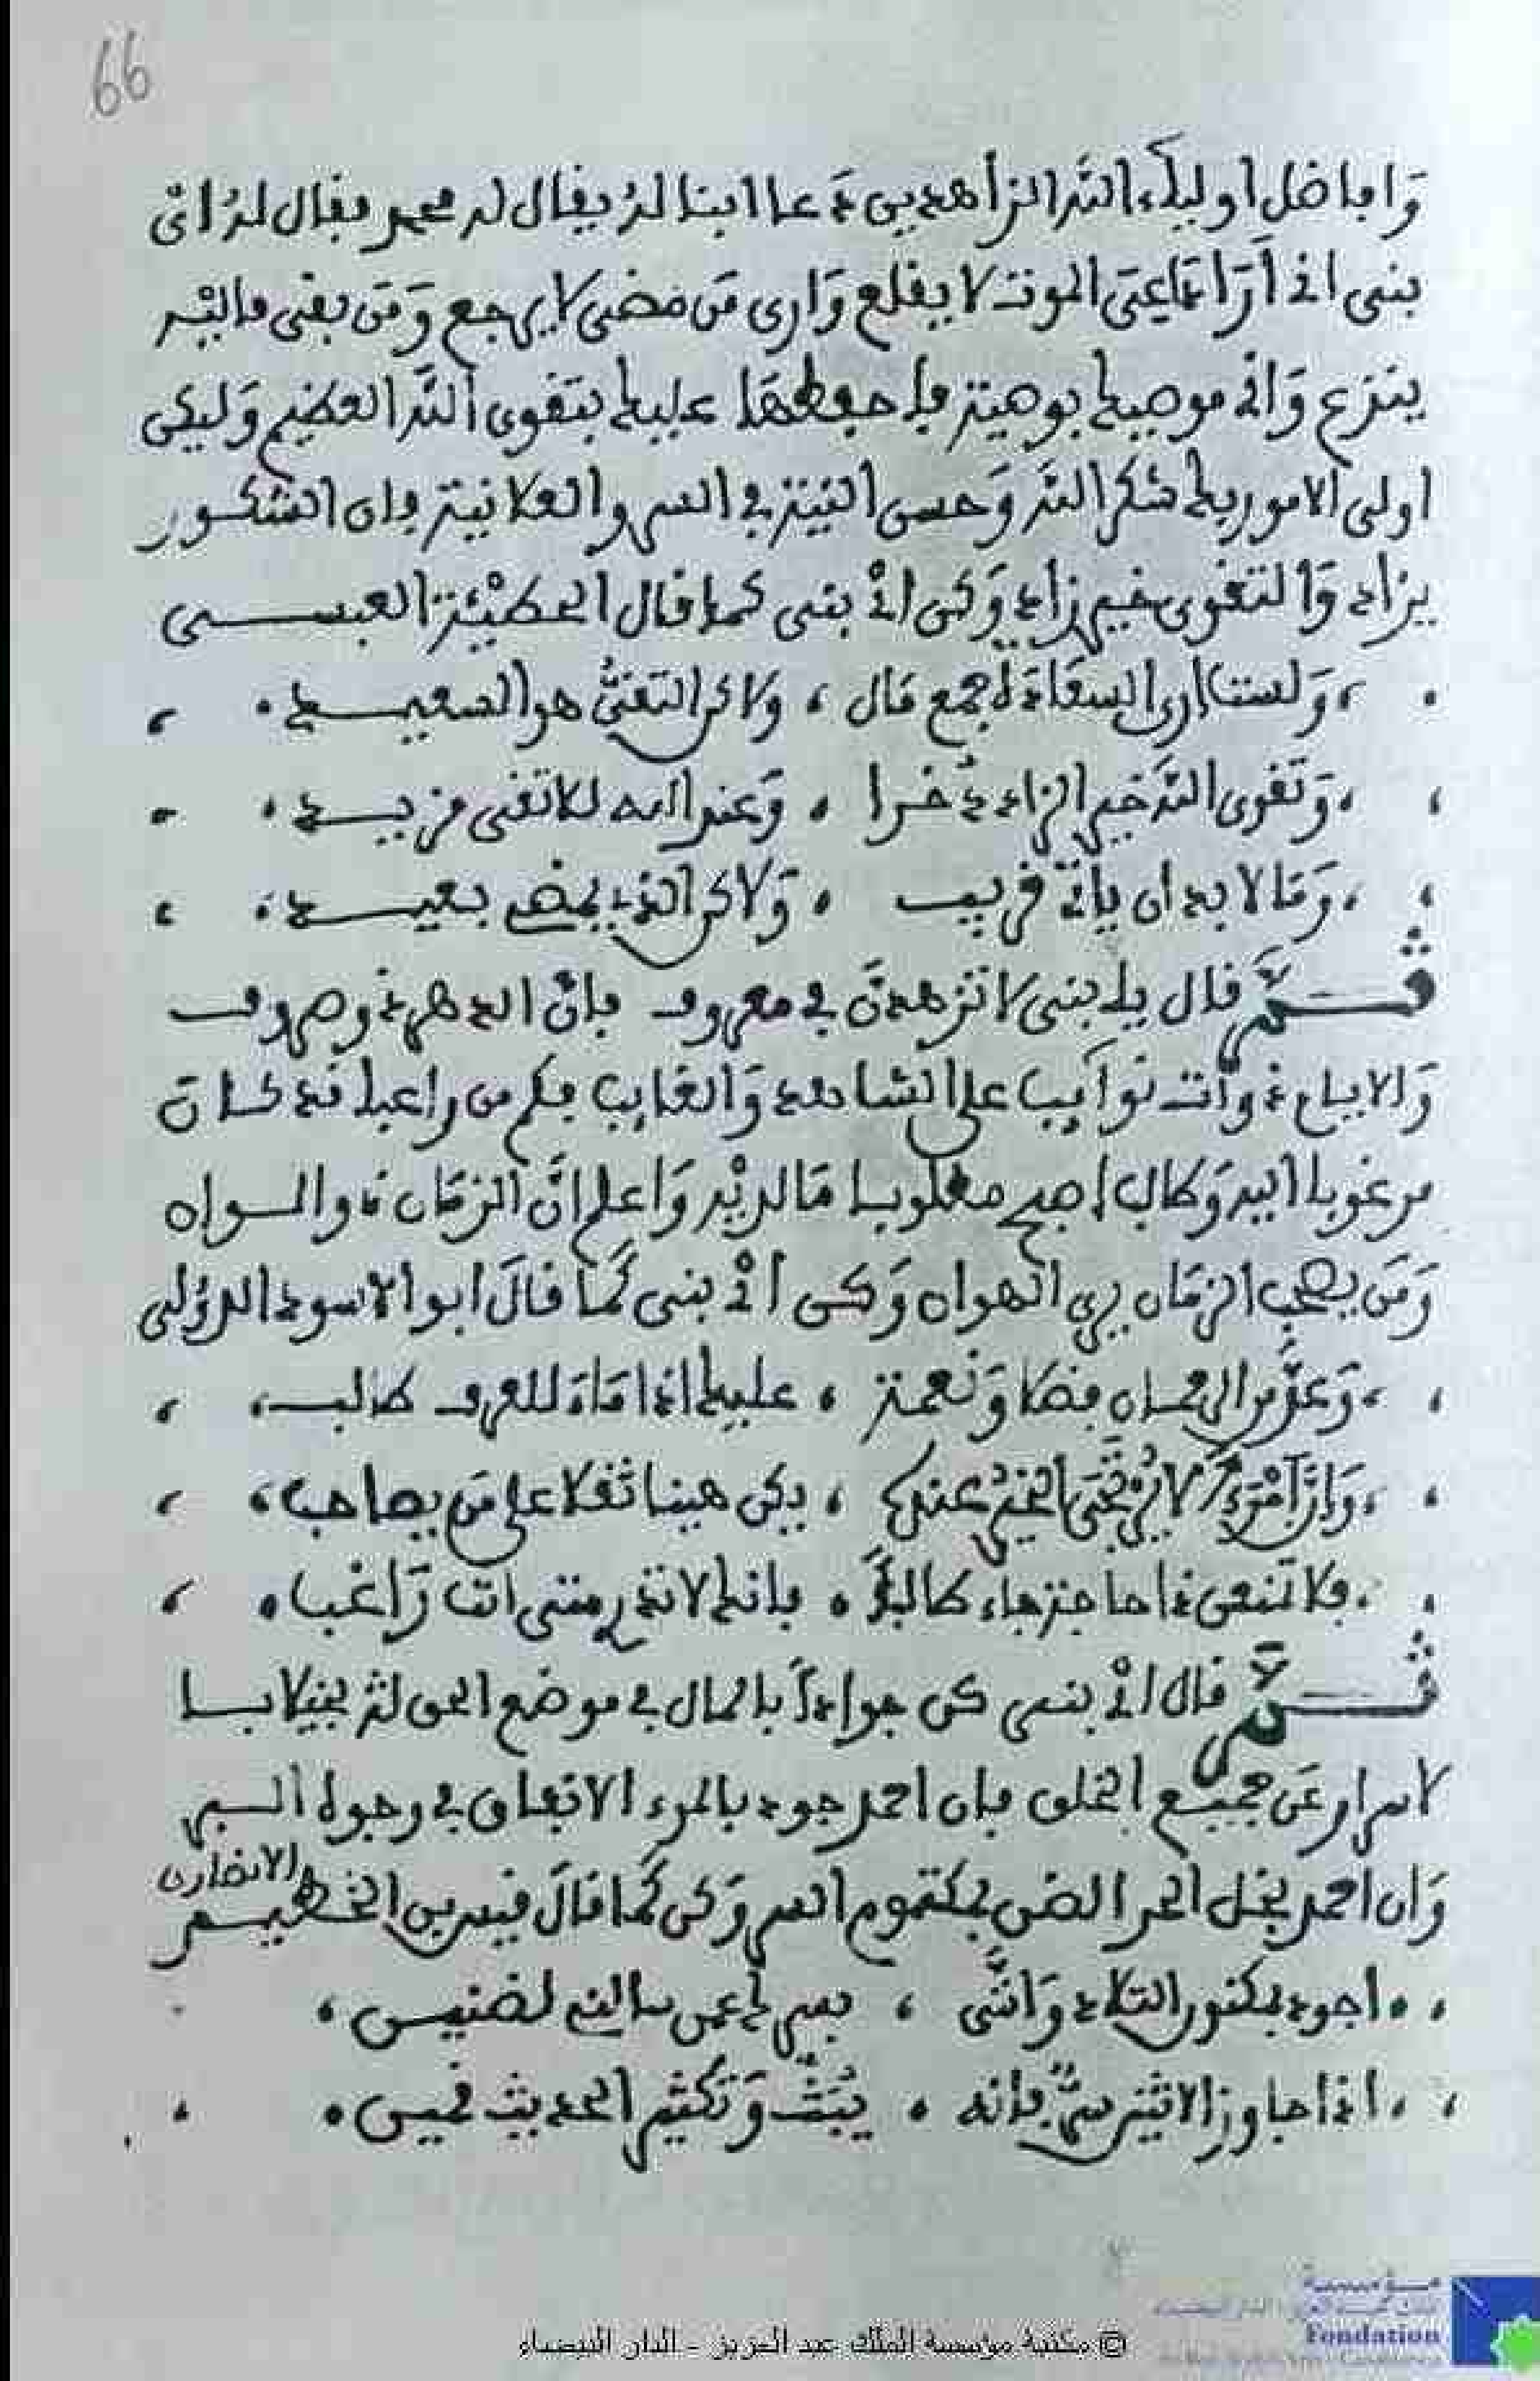 66
وافاضل اوليآء الله الزاهدين دَعا ابنا لهُ يقال له محمد فقال لهُ اىْ
بنى انى أَرَا دَاعِىَ الموت لا يقلع وَارى مَن مضى لا يرجع وَمَن بقى فاليْه
ينزع وَانى موصيك بوصية فاحفظهَا عليك بتقوى اللَّه العظيم وَليكن
اولى الامور بك شكر الله وَحسن النية في السر والعلانية فان الشكور
يزاد وَالتقوى خير زاد وَكن اىْ بنى كما قال الحطيْئة العبسى
وَلست ارى السعَادَة جمع مَال ، ولاكن التقىُّ هو السعيد
وَتقوى الله خير الزاد ذُخرا ، وَعند الله للاتقى مزيد
وَمَا لا بد ان ياتى قريب ، وَلاكن الذى يمضى بعيد
ثمَّ قال يا بنى لا تزهدنَّ في معروف فانّ الدهر ذو صروف
وَالايام ذوات نوآئب على الشاهد وَالغايب فكم من راغب قد كانَ
مرغوبا اليه وَطالب اصبح مطلوبا مَا لديْه وَاعلم انَّ الزمَان ذو الوان
وَمَن يصحب الزمَان يرى الهوان وَكن اىْ بنى كمَا قالَ ابو الاسود الدؤلى
وَعدَّ من الرحمان فضلا وَنعمة ، عليك اذا مَا جَاءَ للعرف طالب
وَانَّ امْرَءا لا يُرْتجَى الخيْرُ عنده ، يكن هينا ثقلا على مَن يصاحب
فلا تمنعن ذا حاجة جاء طالبًا ، فانك لا تدرى متى انت رَاغب
ثمَّ قال اىْ بنى كن جوادًا بالمال في موضع الحق لله بخيلا با
لاسرار عَن جميع الخلق فان احمد جود بالمرء الانفاق في وجوه البر
وَان احمد بخل الحر الضن بمكتوم السر وَكن كمَا قالَ قيس بن الخطيم
الانصارى
اجود بمكنون التلاد وَاننَّى ، بسرك عمن سالنى لضنين
اذا جاوز الاثنين سرٌّ فانه ، يُبَثُّ وَتكثير الحديث قمين
مؤسسة
Fondation
© مكتبة مؤسسة الملك عبد العزيز - الدار البيضاء